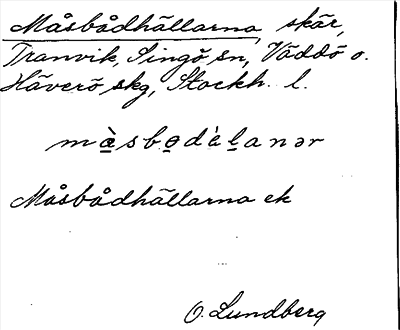 Måsbådhällarna, skär,
Tranvik, Singö sn, Väddö o.
Häverö skg, Stockh. l.
m<u>à</u>sb<u>o</u>dὲ<u>l</u>anər
Måsbådhällarna ek
O. Lundberg